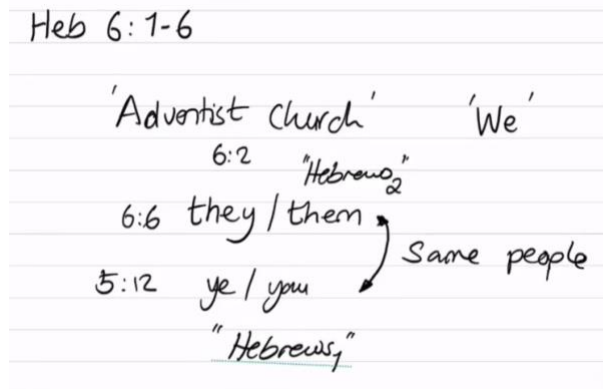 Heb 6:1-6
'Adventist Church' 'We'
6:2 "Hebrews2"
6:6 they/them
Same people
5:12 ye/you
"Hebrews1"